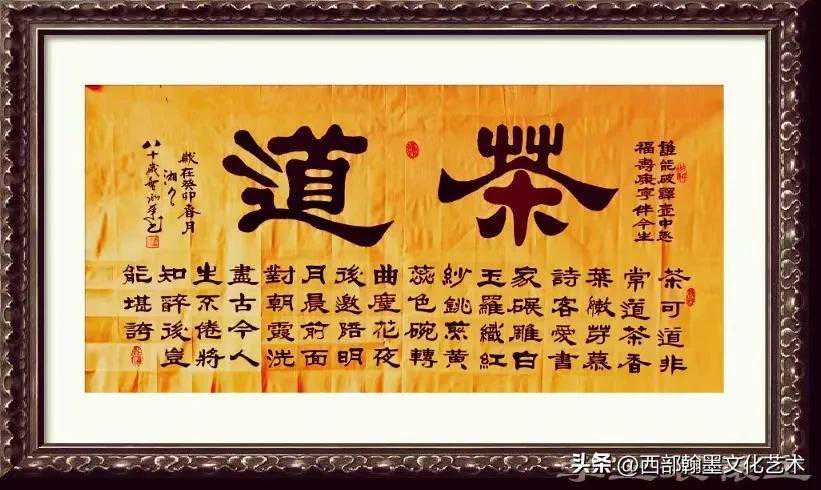 誰能破譯壺中
福壽康寧伴今生
茶道
歲在癸卯春月
八十歲
茶可道非
常道茶香
葉嫩芽慕
詩客愛書
家碾雕白
玉羅織紅
紗銚煎黃
蕊色碗轉
曲塵花夜
後邀陪明
月晨前面
對朝霞洗
盡古今人
生不倦將
知醉後豈
能堪誇
头条 @西部翰墨文化艺术